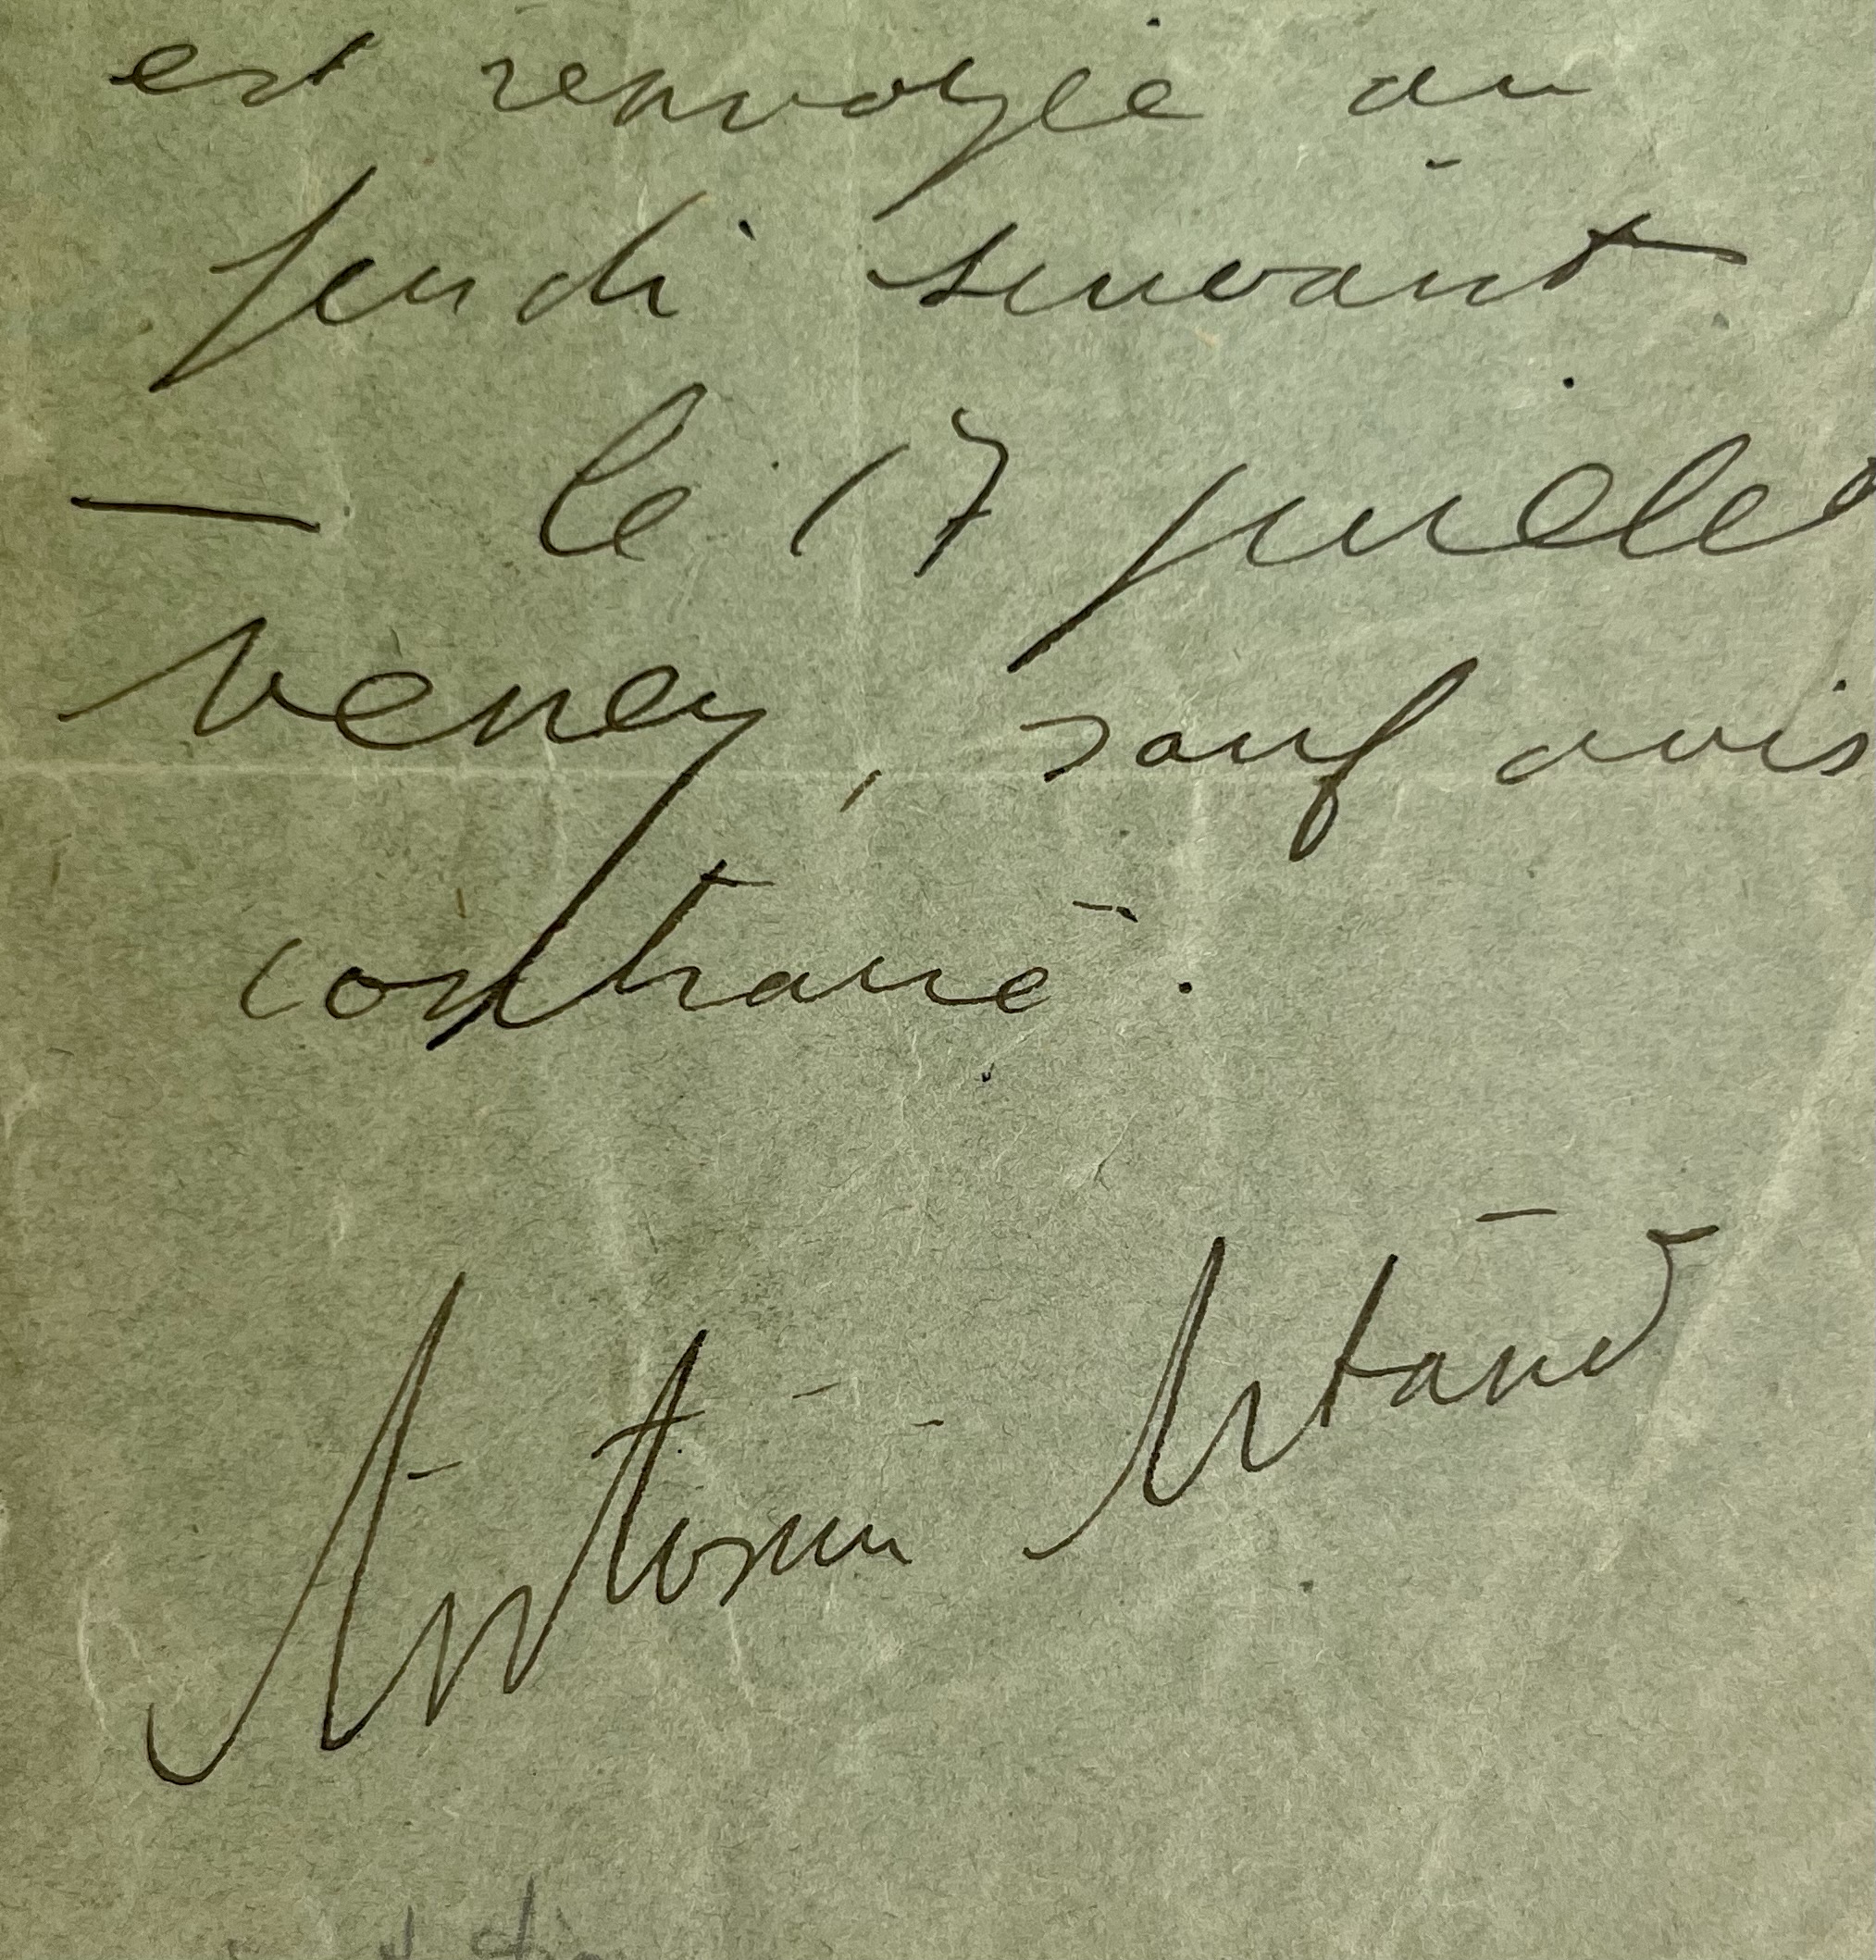 est renvoyée au
jeudi suivant
— le 17 juillet
venez, sauf avis
contraire.
Antonin Artaud